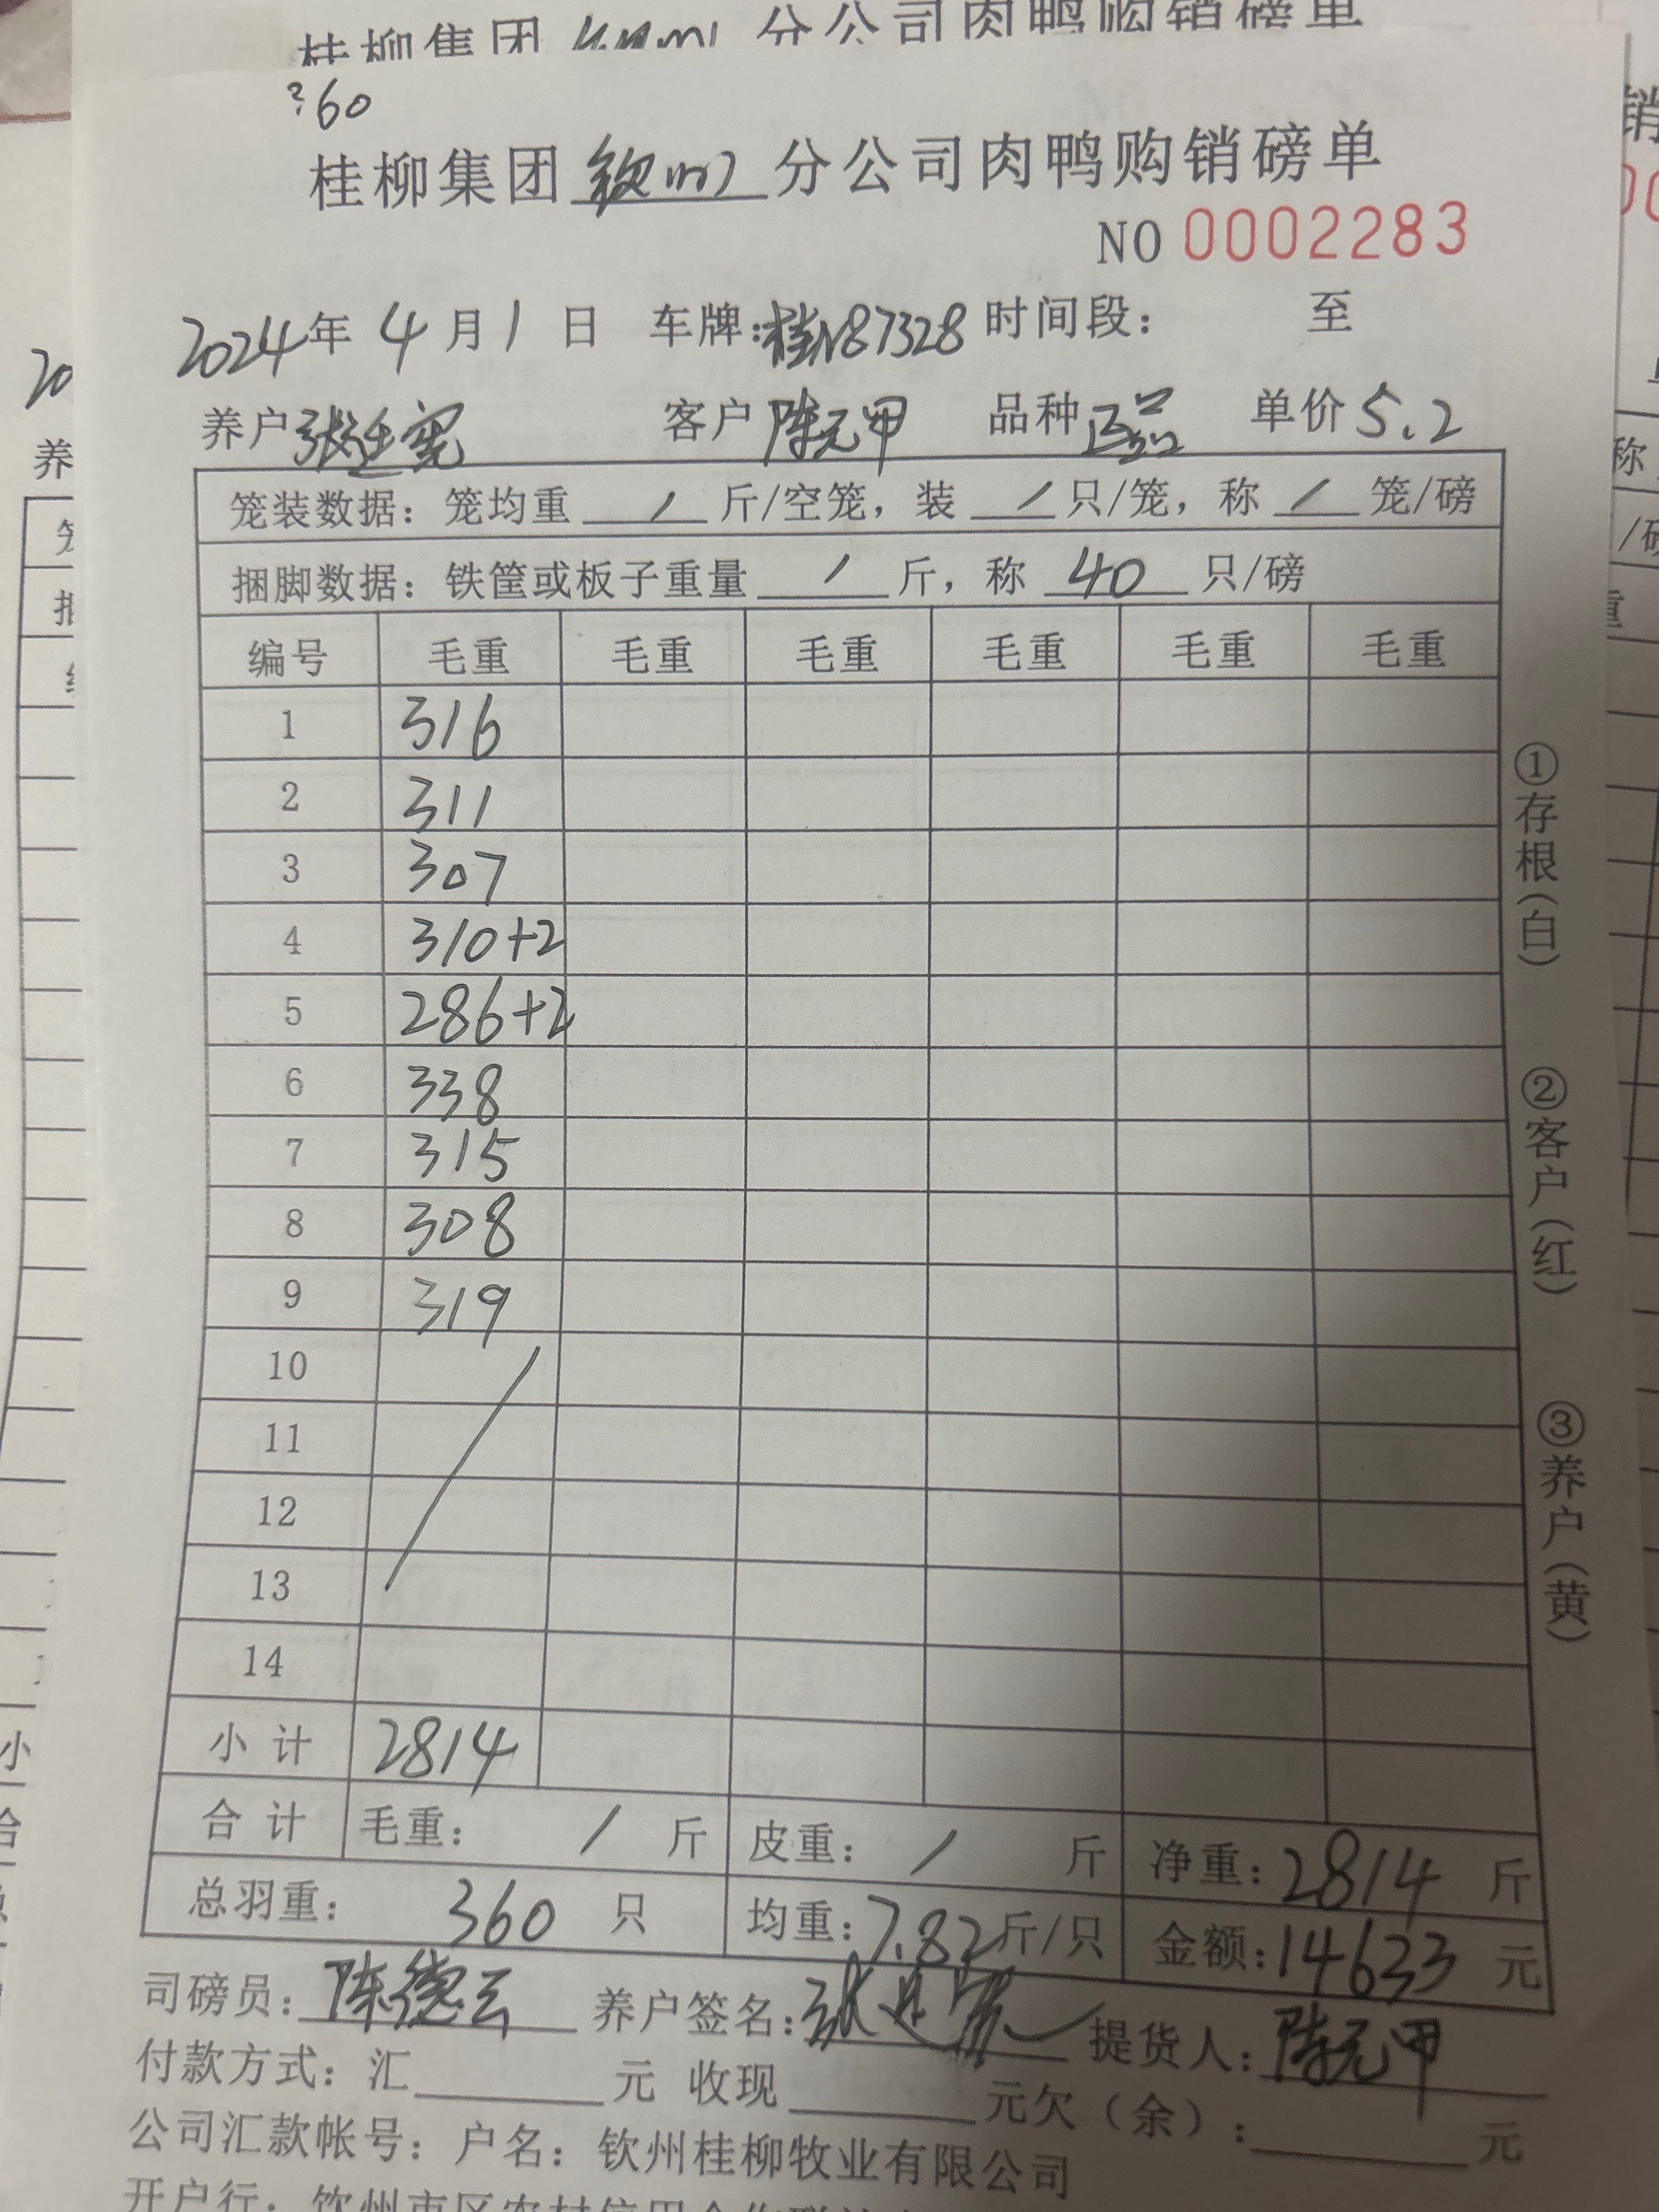 桂柳集团 分公司肉鸭购销磅单
360
桂柳集团钦州分公司肉鸭购销磅单
NO 0002283
2024年 4月1日 车牌:桂N87328 时间段: 至
养户张廷宪 客户陈元甲 品种正品 单价5.2
笼装数据: 笼均重 / 斤/空笼, 装 / 只/笼, 称 / 笼/磅
捆脚数据: 铁筐或板子重量 / 斤, 称 40 只/磅
编号 毛重 毛重 毛重 毛重 毛重 毛重
1 316
2 311
3 307
4 310+2
5 286+2
6 338
7 315
8 308
9 319
10
11
12
13
14
小计 2814
合计 毛重: / 斤 皮重: / 斤 净重:2814 斤
总羽重: 360 只 均重:7.82斤/只 金额:14633 元
司磅员:陈德云 养户签名:张廷宪 提货人:陈元甲
付款方式:汇 元 收现 元欠(余): 元
公司汇款帐号: 户名: 钦州桂柳牧业有限公司
开户行: 钦州市区农村信用合作联社
①存根(白) ②客户(红) ③养户(黄)